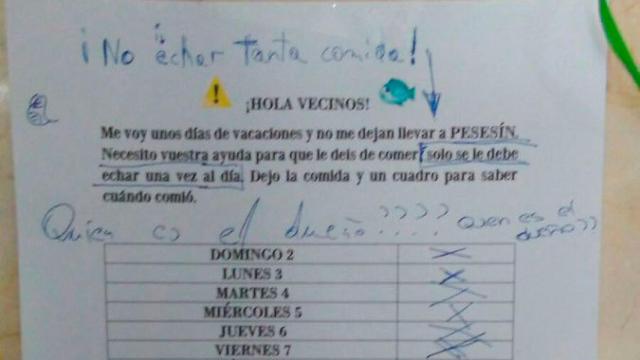 ¡No echar tanta comida!
¡HOLA VECINOS!
Me voy unos días de vacaciones y no me dejan llevar a PESESÍN.
Necesito vuestra ayuda para que le deis de comer, solo se le debe
echar una vez al día. Dejo la comida y un cuadro para saber
cuándo comió.
Quien es el dueño????....
quen es el
dueño??
DOMINGO 2 X
LUNES 3 X
MARTES 4 X
MIÉRCOLES 5 X
JUEVES 6 X
VIERNES 7 X